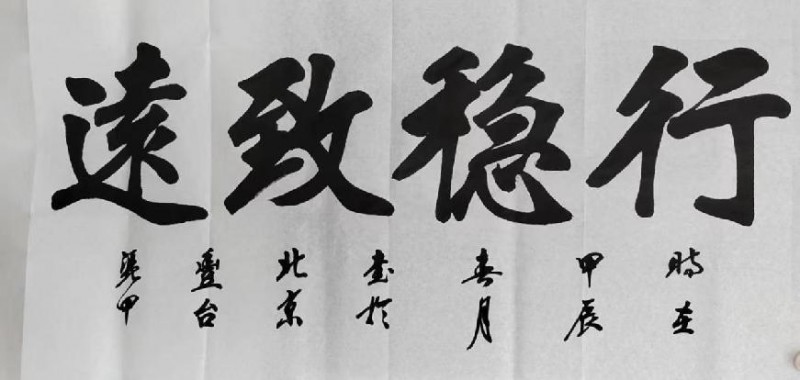 行稳致遠
時在
甲辰
春月
書於
北京
豐台
張甲